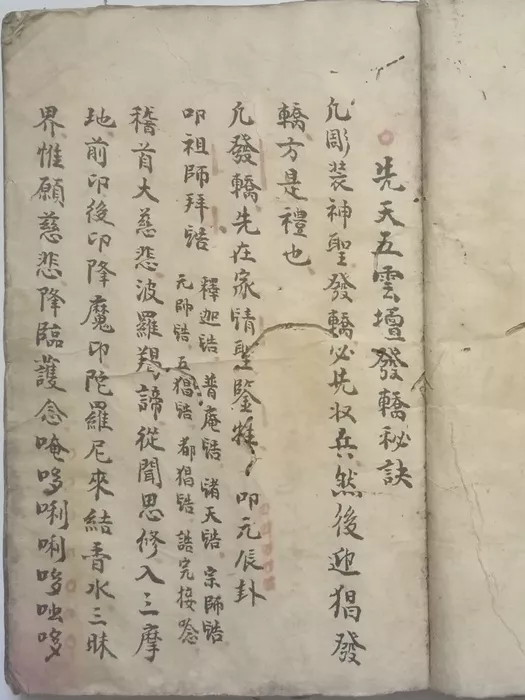 先天五雲壇發轎秘訣
凡彫装神聖發轎必先收兵然後迎猖發
轎方是禮也
凡發轎先在家請聖鑒牲叩元辰卦
叩祖師拜誥
釋迦誥普庵誥諸天誥宗師誥
元帥誥五猖誥都猖誥誥完接唸
稽首大慈悲波羅羯諦從聞思修入三摩
地前印後印降魔印陀羅尼來結香水三昧
界惟願慈悲降臨護念唵哆唎唎哆吔哆